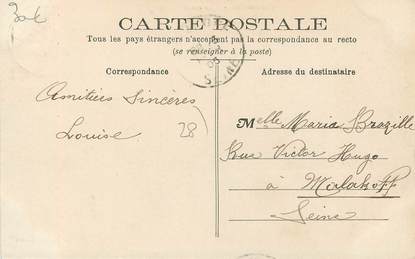 30€
CARTE POSTALE
Tous les pays étrangers n'acceptent pas la correspondance au recto
(se renseigner à la poste)
Correspondance
Adresse du destinataire
SEINE
Amitiés Sincères
Louise
28
Melle Maria Brazille
Rue Victor Hugo
à Malakoff
Seine